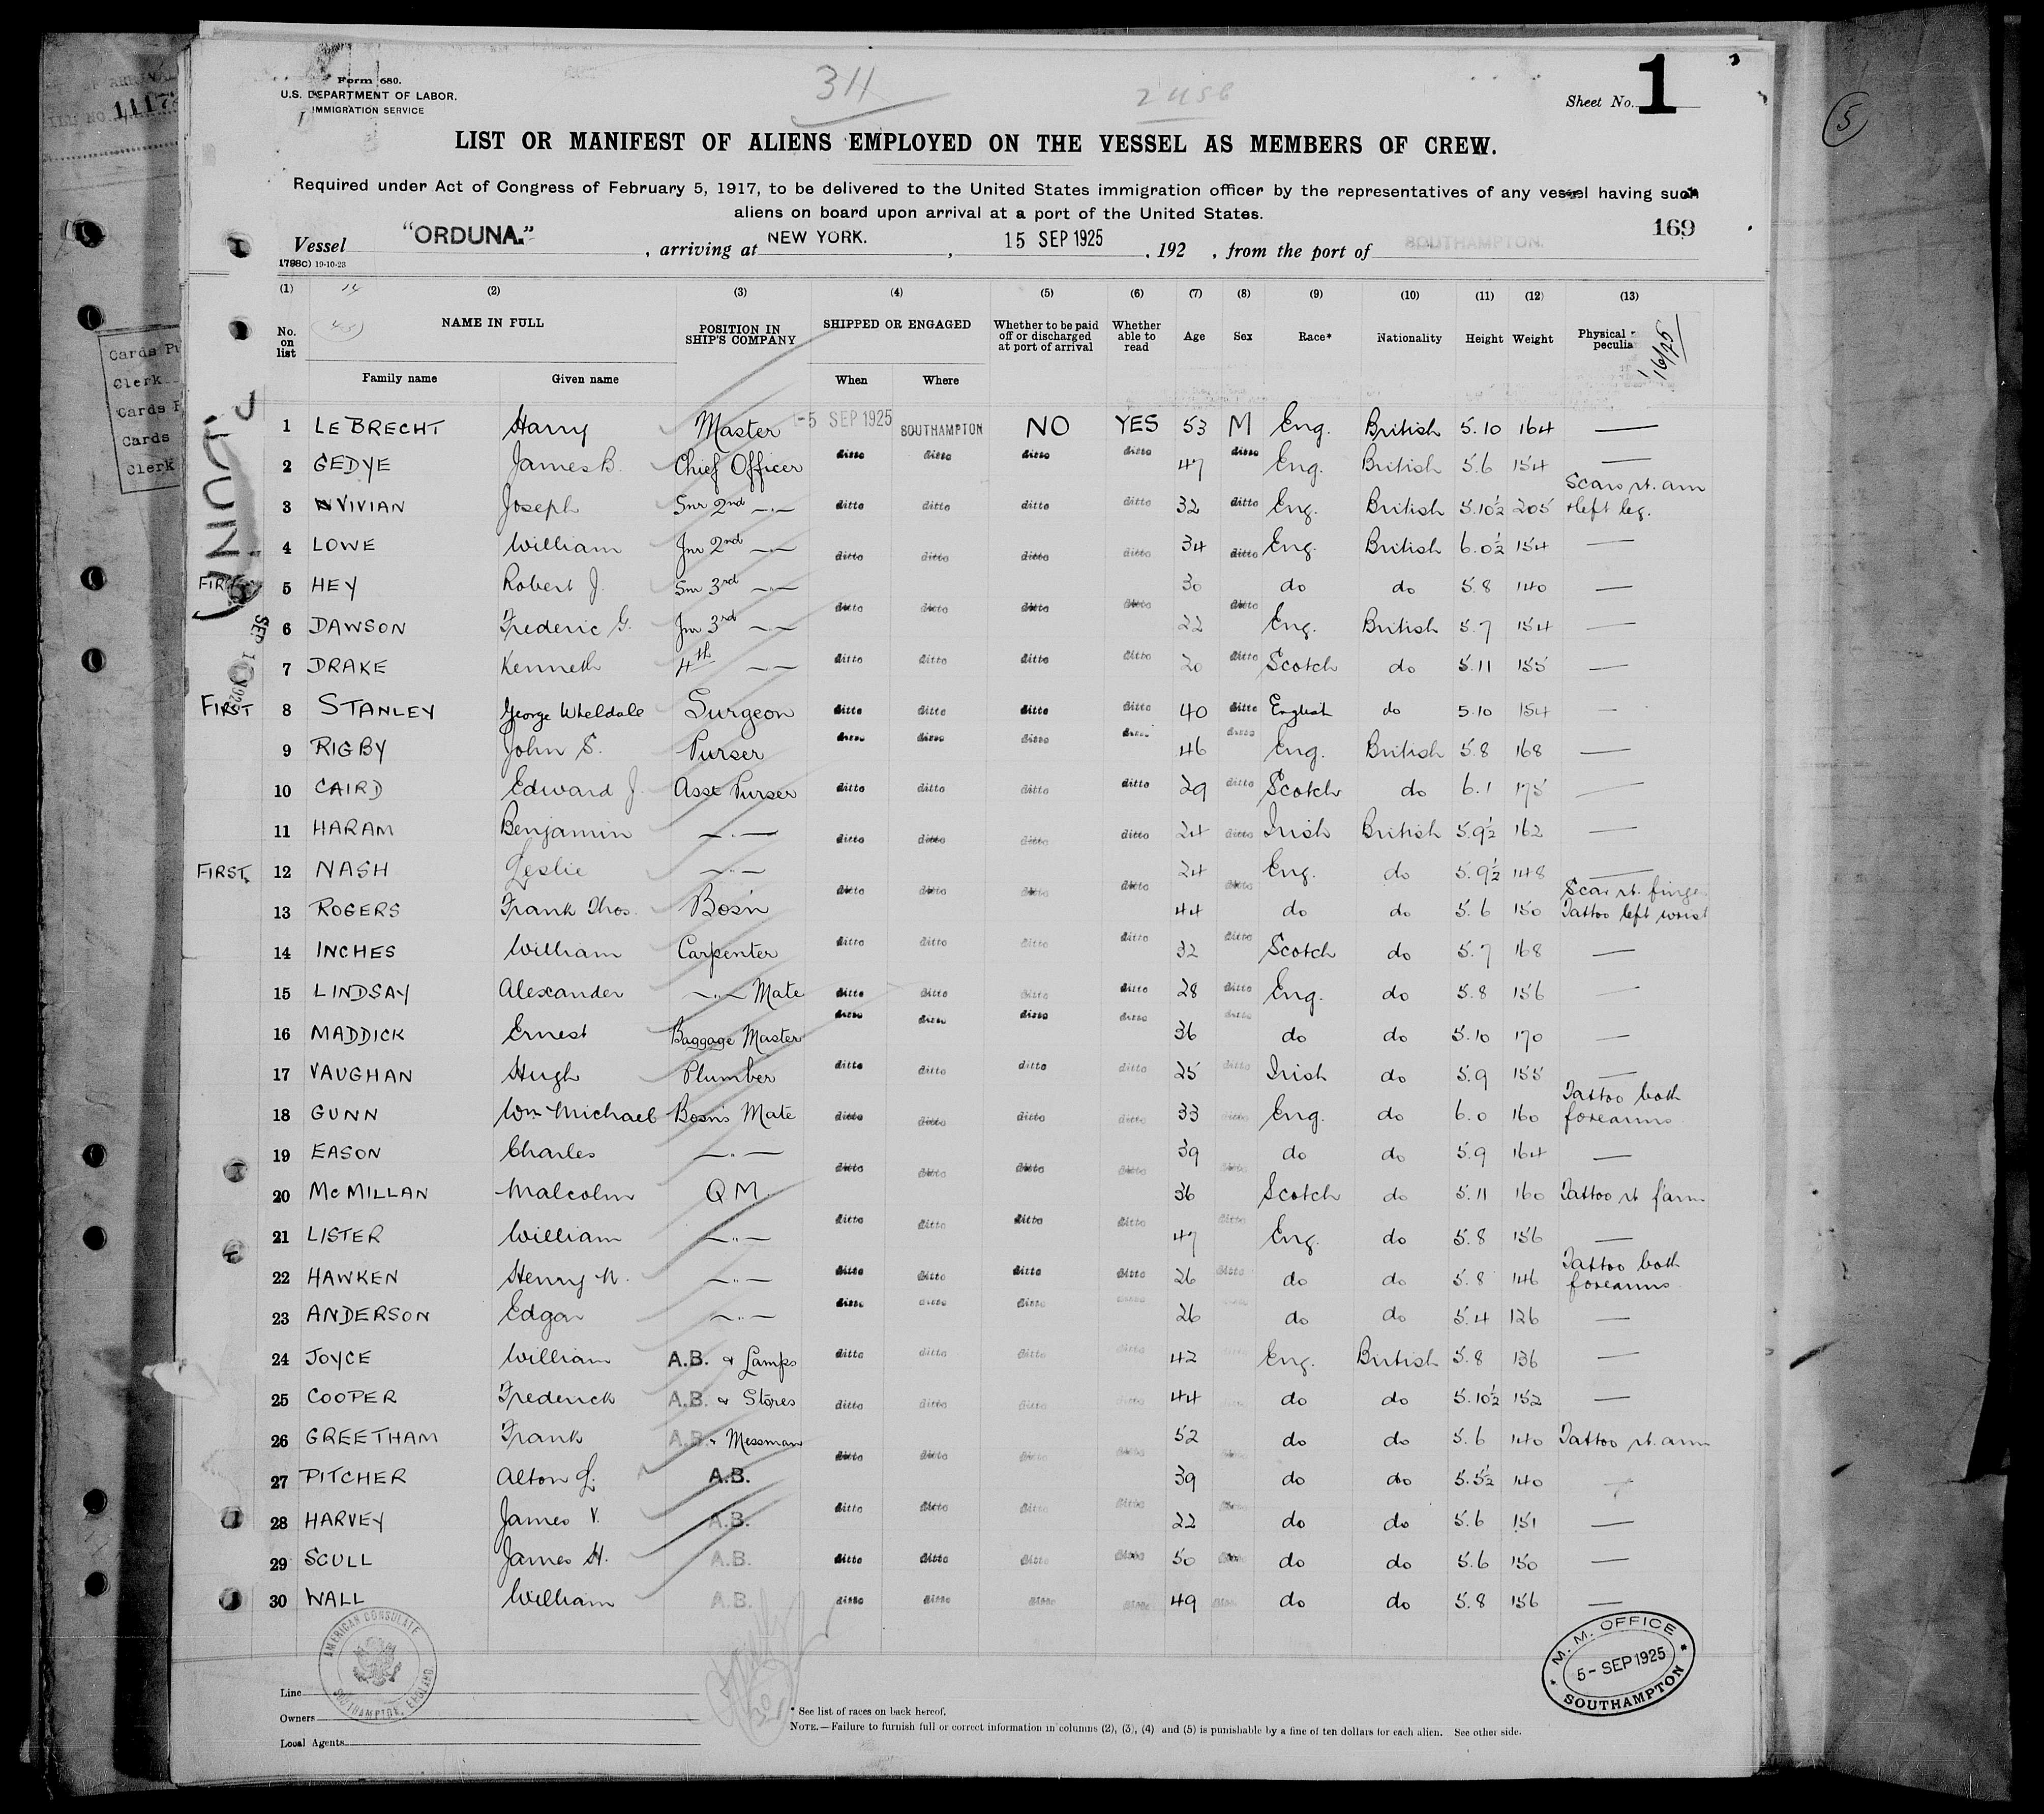 Form 680.
U.S. DEPARTMENT OF LABOR.
IMMIGRATION SERVICE
311
2456
Sheet No. 1
LIST OR MANIFEST OF ALIENS EMPLOYED ON THE VESSEL AS MEMBERS OF CREW.
Required under Act of Congress of February 5, 1917, to be delivered to the United States immigration officer by the representatives of any vessel having such
aliens on board upon arrival at a port of the United States.
169
Vessel "ORDUNA." , arriving at NEW YORK. , 15 SEP 1925 , 192 , from the port of SOUTHAMPTON.
1798c) 19-10-23
(1) (2) (3) (4) (5) (6) (7) (8) (9) (10) (11) (12) (13)
No. on list NAME IN FULL Family name Given name POSITION IN SHIP'S COMPANY SHIPPED OR ENGAGED When Where Whether to be paid off or discharged at port of arrival Whether able to read Age Sex Race* Nationality Height Weight Physical peculia
1 LE BRECHT Harry Master -5 SEP 1925 SOUTHAMPTON NO YES 53 M Eng. British 5.10 164 —
2 GEDYE James B. Chief Officer ditto ditto ditto ditto 47 ditto Eng. British 5.6 154 —
3 VIVIAN Joseph Snr 2nd —"— ditto ditto ditto ditto 32 ditto Eng. British 5.10½ 205 Scars rt. arm + left leg.
4 LOWE William Jnr 2nd —"— ditto ditto ditto ditto 34 ditto Eng. British 6.0½ 154 —
FIRST 5 HEY Robert J. Snr 3rd —"— 30 do do 5.8 140 —
6 DAWSON Frederic G. Jnr 3rd —"— ditto ditto ditto ditto 22 ditto Eng. British 5.7 154 —
7 DRAKE Kenneth 4th —"— ditto ditto ditto ditto 20 ditto Scotch do 5.11 155 —
FIRST 8 STANLEY George Wheldale Surgeon ditto ditto ditto ditto 40 ditto English do 5.10 154 —
9 RIGBY John S. Purser ditto ditto ditto ditto 46 ditto Eng. British 5.8 168 —
10 CAIRD Edward J. Asst Purser ditto ditto ditto ditto 29 ditto Scotch do 6.1 175 —
11 HARAM Benjamin —"— ditto ditto ditto ditto 24 ditto Irish British 5.9½ 162 —
FIRST. 12 NASH Leslie —"— 24 Eng. do 5.9½ 148 —
13 ROGERS Frank Thos. Bos'n ditto ditto ditto ditto 44 ditto do do 5.6 150 Scar rt. finger Tattoo left wrist
14 INCHES William Carpenter ditto ditto ditto ditto 32 ditto Scotch do 5.7 168 —
15 LINDSAY Alexander —"— Mate ditto ditto ditto ditto 28 ditto Eng. do 5.8 156 —
16 MADDICK Ernest Baggage Master ditto ditto ditto ditto 36 ditto do do 5.10 170 —
17 VAUGHAN Hugh Plumber ditto ditto ditto ditto 25 ditto Irish do 5.9 155 —
18 GUNN Wm Michael Bosn's Mate ditto ditto ditto ditto 33 ditto Eng. do 6.0 160 Tattoo both forearms.
19 EASON Charles —"— 39 do do 5.9 164 —
20 McMILLAN Malcolm Q M. ditto ditto ditto ditto 36 ditto Scotch do 5.11 160 Tattoo rt f'arm
21 LISTER William —"— ditto ditto ditto ditto 47 ditto Eng. do 5.8 156 —
22 HAWKEN Henry W. —"— ditto ditto ditto ditto 26 ditto do do 5.8 146 Tattoo both forearms.
23 ANDERSON Edgar —"— ditto ditto ditto ditto 26 ditto do do 5.4 126 —
24 JOYCE William A.B. & Lamps ditto ditto ditto ditto 42 ditto Eng. British 5.8 136 —
25 COOPER Frederick A.B. & Stores ditto ditto ditto ditto 44 ditto do do 5.10½ 152 —
26 GREETHAM Frank A.B. & Messman 52 do do 5.6 140 Tattoo rt. arm
27 PITCHER Alton L. A.B. ditto ditto ditto ditto 39 ditto do do 5.5½ 140 —
28 HARVEY James V. A.B. ditto ditto ditto ditto 22 ditto do do 5.6 151 —
29 SCULL James H. A.B. ditto ditto ditto ditto 50 ditto do do 5.6 150 —
30 WALL William A.B. ditto ditto ditto ditto 49 ditto do do 5.8 156 —
AMERICAN CONSULATE
SOUTHAMPTON, ENGLAND
M. M. OFFICE
5 - SEP 1925
SOUTHAMPTON
Line
Owners
Local Agents
* See list of races on back hereof.
NOTE.—Failure to furnish full or correct information in columns (2), (3), (4) and (5) is punishable by a fine of ten dollars for each alien. See other side.
5
1117
Cards
Clerk
Cards
Cards
Clerk